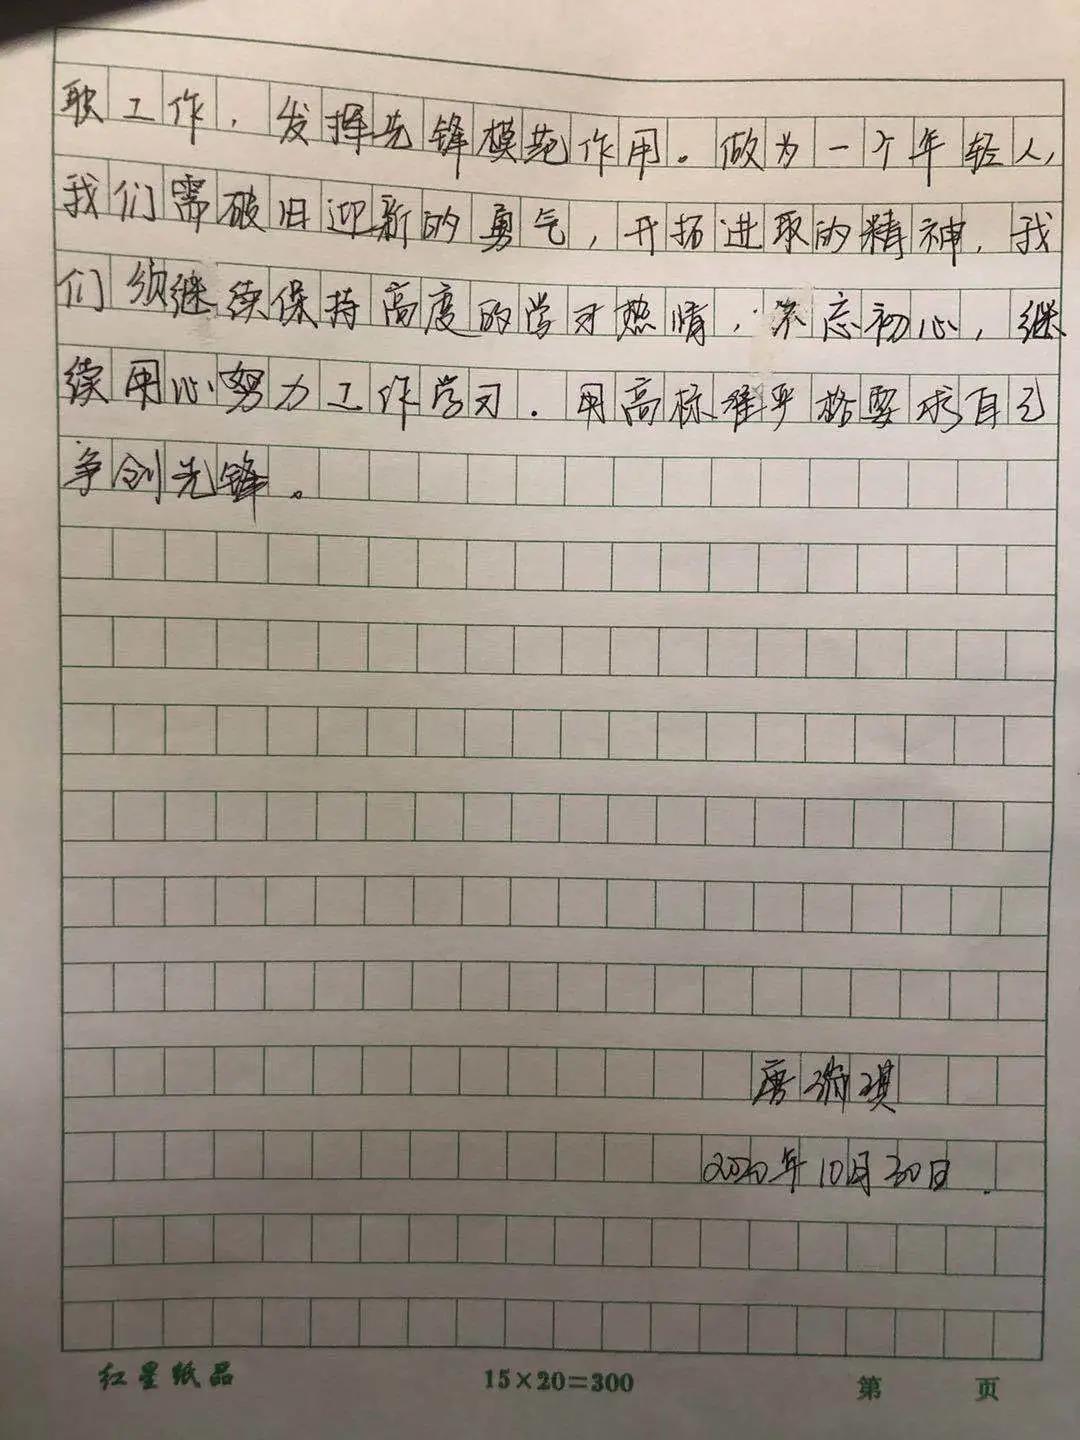 职工作，发挥先锋模范作用。做为一个年轻人，
我们需破旧迎新的勇气，开拓进取的精神，我
们须继续保持高度的学习热情，不忘初心，继
续用心努力工作学习．用高标准严格要求自己
争创先锋。
唐瑜琪
2020年10月30日．
红星纸品
15×20=300
第 页